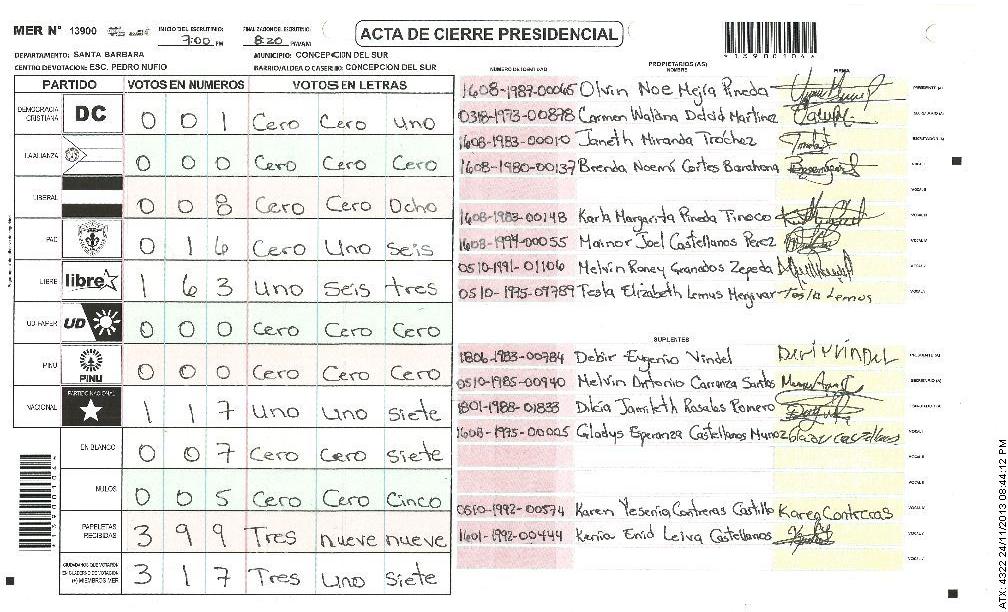 MER N° 13900
INICIO DEL ESCRUTINIO: 7:00 PM
FINALIZACION DEL ESCRUTINIO: 8:20 PM/AM
ACTA DE CIERRE PRESIDENCIAL
DEPARTAMENTO: SANTA BARBARA
MUNICIPIO: CONCEPCION DEL SUR
CENTRO DE VOTACION: ESC. PEDRO NUFIO
BARRIO/ALDEA O CASERIO: CONCEPCION DEL SUR
PARTIDO VOTOS EN NUMEROS VOTOS EN LETRAS
DEMOCRACIA CRISTIANA DC 0 0 1 Cero Cero Uno
LA ALIANZA 0 0 0 Cero Cero Cero
LIBERAL 0 0 8 Cero Cero Ocho
PAC 0 1 6 Cero Uno seis
LIBRE libre 1 6 3 Uno Seis tres
UD-FAPER UD 0 0 0 Cero Cero Cero
PINU PINU 0 0 0 Cero Cero Cero
NACIONAL PARTIDO NACIONAL 1 1 7 Uno Uno Siete
EN BLANCO 0 0 7 Cero Cero Siete
NULOS 0 0 5 Cero Cero Cinco
PAPELETAS RECIBIDAS 3 9 9 Tres nueve nueve
CIUDADANOS QUE VOTARON EN CUADERNO DE VOTACION (+) MIEMBROS MER 3 1 7 Tres Uno Siete
PROPIETARIOS (AS)
NUMERO DE IDENTIDAD NOMBRE FIRMA
1608-1987-00065 Olvin Noe Mejia Pineda PRESIDENTE (A)
0318-1973-00878 Carmen Martinez SECRETARIO (A)
1608-1983-00010 Janeth Miranda Tróchez ESCRUTADOR (A)
1608-1980-00137 Brenda Noemi Cortes Barahona VOCAL I
VOCAL II
1608-1983-00148 Karla Margarita Pineda Tinoco VOCAL III
1608-1994-00055 Mainor Joel Castellanos Perez VOCAL IV
0510-1991-01106 Melvin Roney Granados Zepeda VOCAL V
0510-1975-09789 Tesla Elizabeth Lemus Menjivar Tesla Lemus
SUPLENTES
1806-1983-00784 Debir Eugenio Vindel PRESIDENTE (A)
0510-1985-00940 Melvin Antonio Carranza Santos SECRETARIO (A)
1801-1988-01833 Dilcia Jamileth Rosales Romero ESCRUTADOR (A)
1608-1975-00005 Gladys Esperanza Castellanos Munoz VOCAL I
VOCAL II
VOCAL III
0510-1992-00574 Karen Yesenia Contreras Castillo Karen Contreras VOCAL IV
1601-1992-00444 Kenia Enid Leiva Castellanos VOCAL V
ATX: 4322 24/11/2013 08:44:12 PM